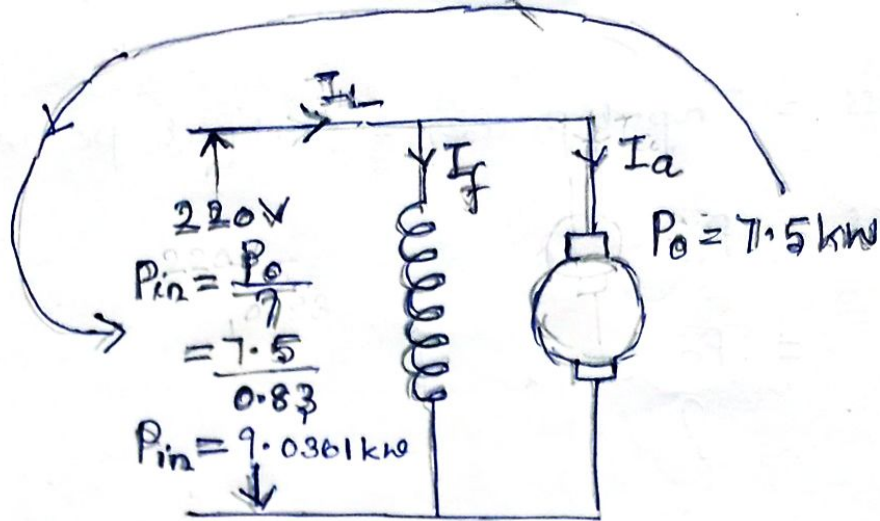 I_L
I_f
I_a
220V
P_o = 7.5 kW
P_in = P_o / η
= 7.5 / 0.83
P_in = 9.0361 kW